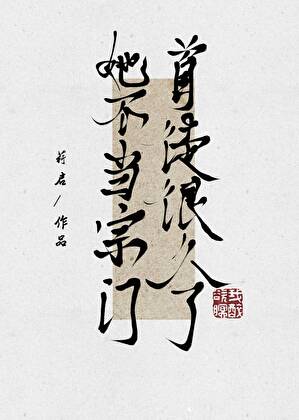 她不当宗门
首徒很久了
/作品